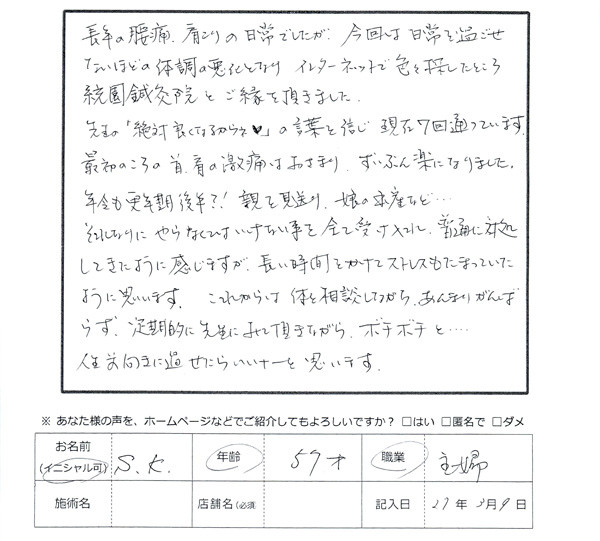 長年の腰痛、肩こりの日常でしたが、今回は日常を過ごせ
ないほどの体調の悪化となり インターネットで色々探したところ
統園鍼灸院とご縁を頂きました。
先生の「絶対良くなるからネ♥」の言葉を信じ 現在7回通っています。
最初のころの首、肩の激痛はおさまり、ずいぶん楽になりました。
年令も更年期後半?! 親を見送り、娘の出産など…
それなりに やらなくてはいけない事を全て受け入れ、普通に対処
してきたように感じますが、長い時間をかけてストレスもたまっていた
ように思います。 これからは体と相談しながら、あんまりがんば
らず、定期的に先生にみて頂きながら、ボチボチと‥‥
人生前向きに過せたらいいナーと思います。
※ あなた様の声を、ホームページなどでご紹介してもよろしいですか? □はい □匿名で □ダメ
お名前(イニシャル可) S.K. 年齢 57才 職業 主婦
施術名 店舗名(必須) 記入日 27年3月9日